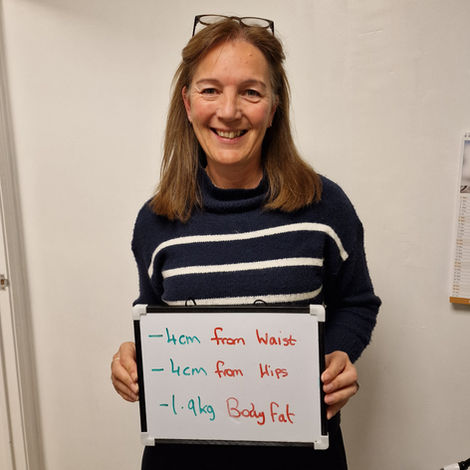 -4cm from Waist
-4cm from Hips
-1.9kg Body fat